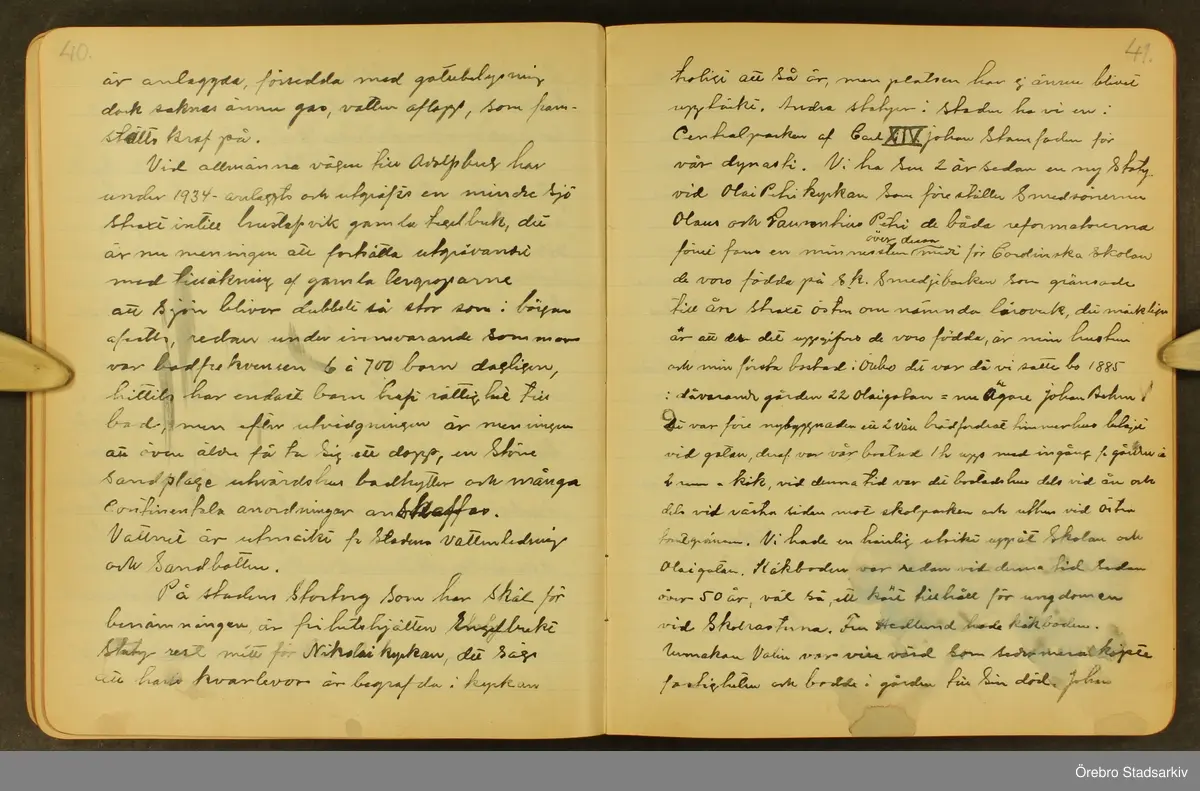 40.
är anlaggda, försedda med gatubelysning
dock saknas ännu gas, vatten aflopp, som fram-
ställts kraf på.
Vid allmänna vägen till Adolfsberg har
under 1934 - anlaggts och utgräfts en mindre Sjö
Straxt intill Gustafsvik gamla tegelbruk, det
är nu meningen att fortsätta utgrävandet
med tillsökning af gamla lergroparne
att Sjön bliver dubbelt så stor som i början
redan under innevarande Sommar
var badfrekvensen 6 à 700 barn dagligen,
hittils har endast barn haft rättighet till
bad, men efter utvidgningen är meningen
att även äldre få ta Sig ett dopp, en Större
Sandplage utvärdshus badhytter och många
Continentala anordningar anskaffas.
Vattnet är utmärkt fr Stadens Vattenledning
och Sandbotten.
På stadens Stortorg Som har Skäl för
benämningen, är frihetshjälten Engelbrekt
Staty rest mitt för Nikolai kyrkan, det sags
att hans kvarlevor är begrafda i kyrkan
41.
troligt att Så är, men platsen har ej ännu blivit
upptäckt. Andra statyer i staden ha vi en i
Centralparken af Carl XIV Johan Stamfadern för
vår dynasti. Vi ha Sen 2 år sedan en ny Staty
vid Olai Petri kyrkan Som föreställer Smedsönerna
Olaus och Laurentius Petri de båda reformatorerna
förut fans en minnessten över dem midt för Cardinska Skolan
de voro födda på S.k. Smedjebacken Som gränsade
till ån Straxt öster om nämnda läroverk, det märkliga
är att der det uppgifves de voro födda, är min hustru
och min första bostad i Örebro det var då vi satte bo 1885
i dåvarande gården 22 Olaigatan = nu Ägare Johan Behm
Det var före nybyggnaden ett 2 vån brädfodrat timmerhus beläget
vid gatan, deraf var vår bostad 1 tr upp med ingång fr gården
2 rum o kök, vid denna tid var det bostadshus dels vid ån och
dels vid västra sidan mot skolparken och uthus vid östra
tomtgränsen. Vi hade en härlig utsikt uppåt Skolan och
Olaigatan. Käkboden var redan vid denna tid Sedan
över 50 år, väl Så, ett kärt tillhåll för ungdomen
vid Skolrasterna. Fru Hedlund hade käkboden.
Urmakare Valin var vice värd Som sedermera köpte
fastigheten och bodde i gården till Sin död. Johan
Örebro Stadsarkiv